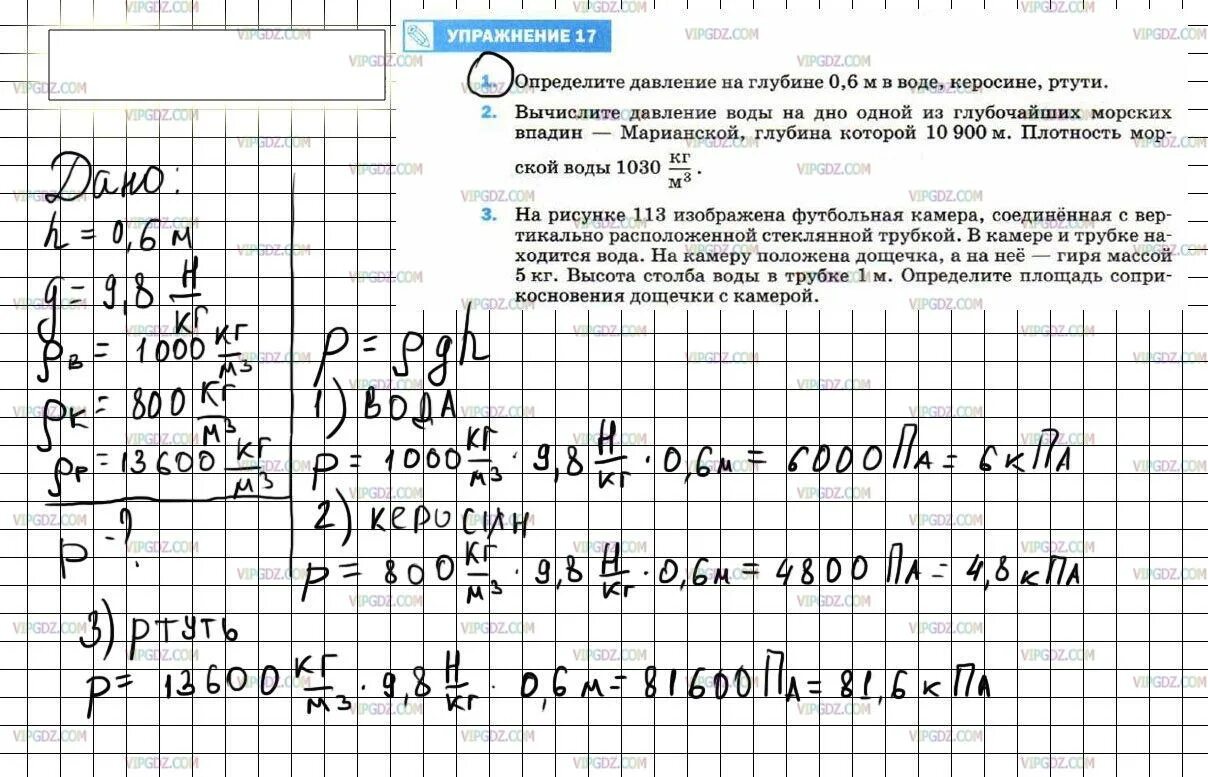 УПРАЖНЕНИЕ 17
1. Определите давление на глубине 0,6 м в воде, керосине, ртути.
2. Вычислите давление воды на дно одной из глубочайших морских
впадин — Марианской, глубина которой 10 900 м. Плотность мор-
ской воды 1030 кг/м³.
3. На рисунке 113 изображена футбольная камера, соединённая с вер-
тикально расположенной стеклянной трубкой. В камере и трубке на-
ходится вода. На камеру положена дощечка, а на неё — гиря массой
5 кг. Высота столба воды в трубке 1 м. Определите площадь сопри-
косновения дощечки с камерой.
Дано:
h = 0,6 м
g = 9,8 Н/кг
ρв = 1000 кг/м³
ρк = 800 кг/м³
ρр = 13600 кг/м³
p - ?
p = ρgh
1) ВОДА
p = 1000 кг/м³ · 9,8 Н/кг · 0,6м = 6000 Па = 6 кПа
2) керосин
p = 800 кг/м³ · 9,8 Н/кг · 0,6м = 4800 Па = 4,8 кПа
3) ртуть
p = 13600 кг/м³ · 9,8 Н/кг · 0,6 м = 81600 Па = 81,6 кПа
VIPGDZ.COM